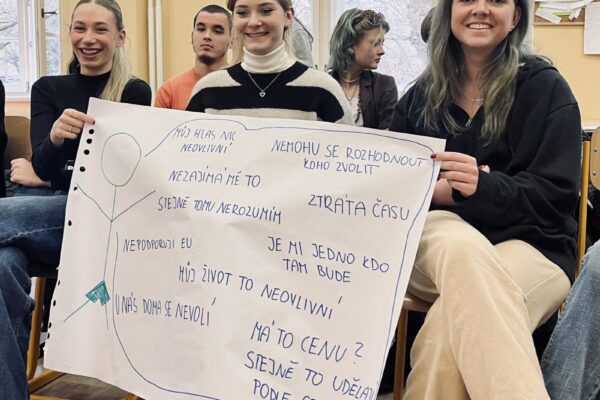 MŮJ HLAS NIC
NEOVLIVNÍ
NEMOHU SE ROZHODNOUT
KOHO ZVOLIT
NEZAJÍMÁ MĚ TO
ZTRÁTA ČASU
STEJNĚ TOMU NEROZUMÍM
NEPODPORUJI EU
JE MI JEDNO KDO
TAM BUDE
MŮJ ŽIVOT TO NEOVLIVNÍ
U NÁS DOMA SE NEVOLÍ
MÁ TO CENU?
STEJNĚ TO UDĚLAJÍ
PODLE